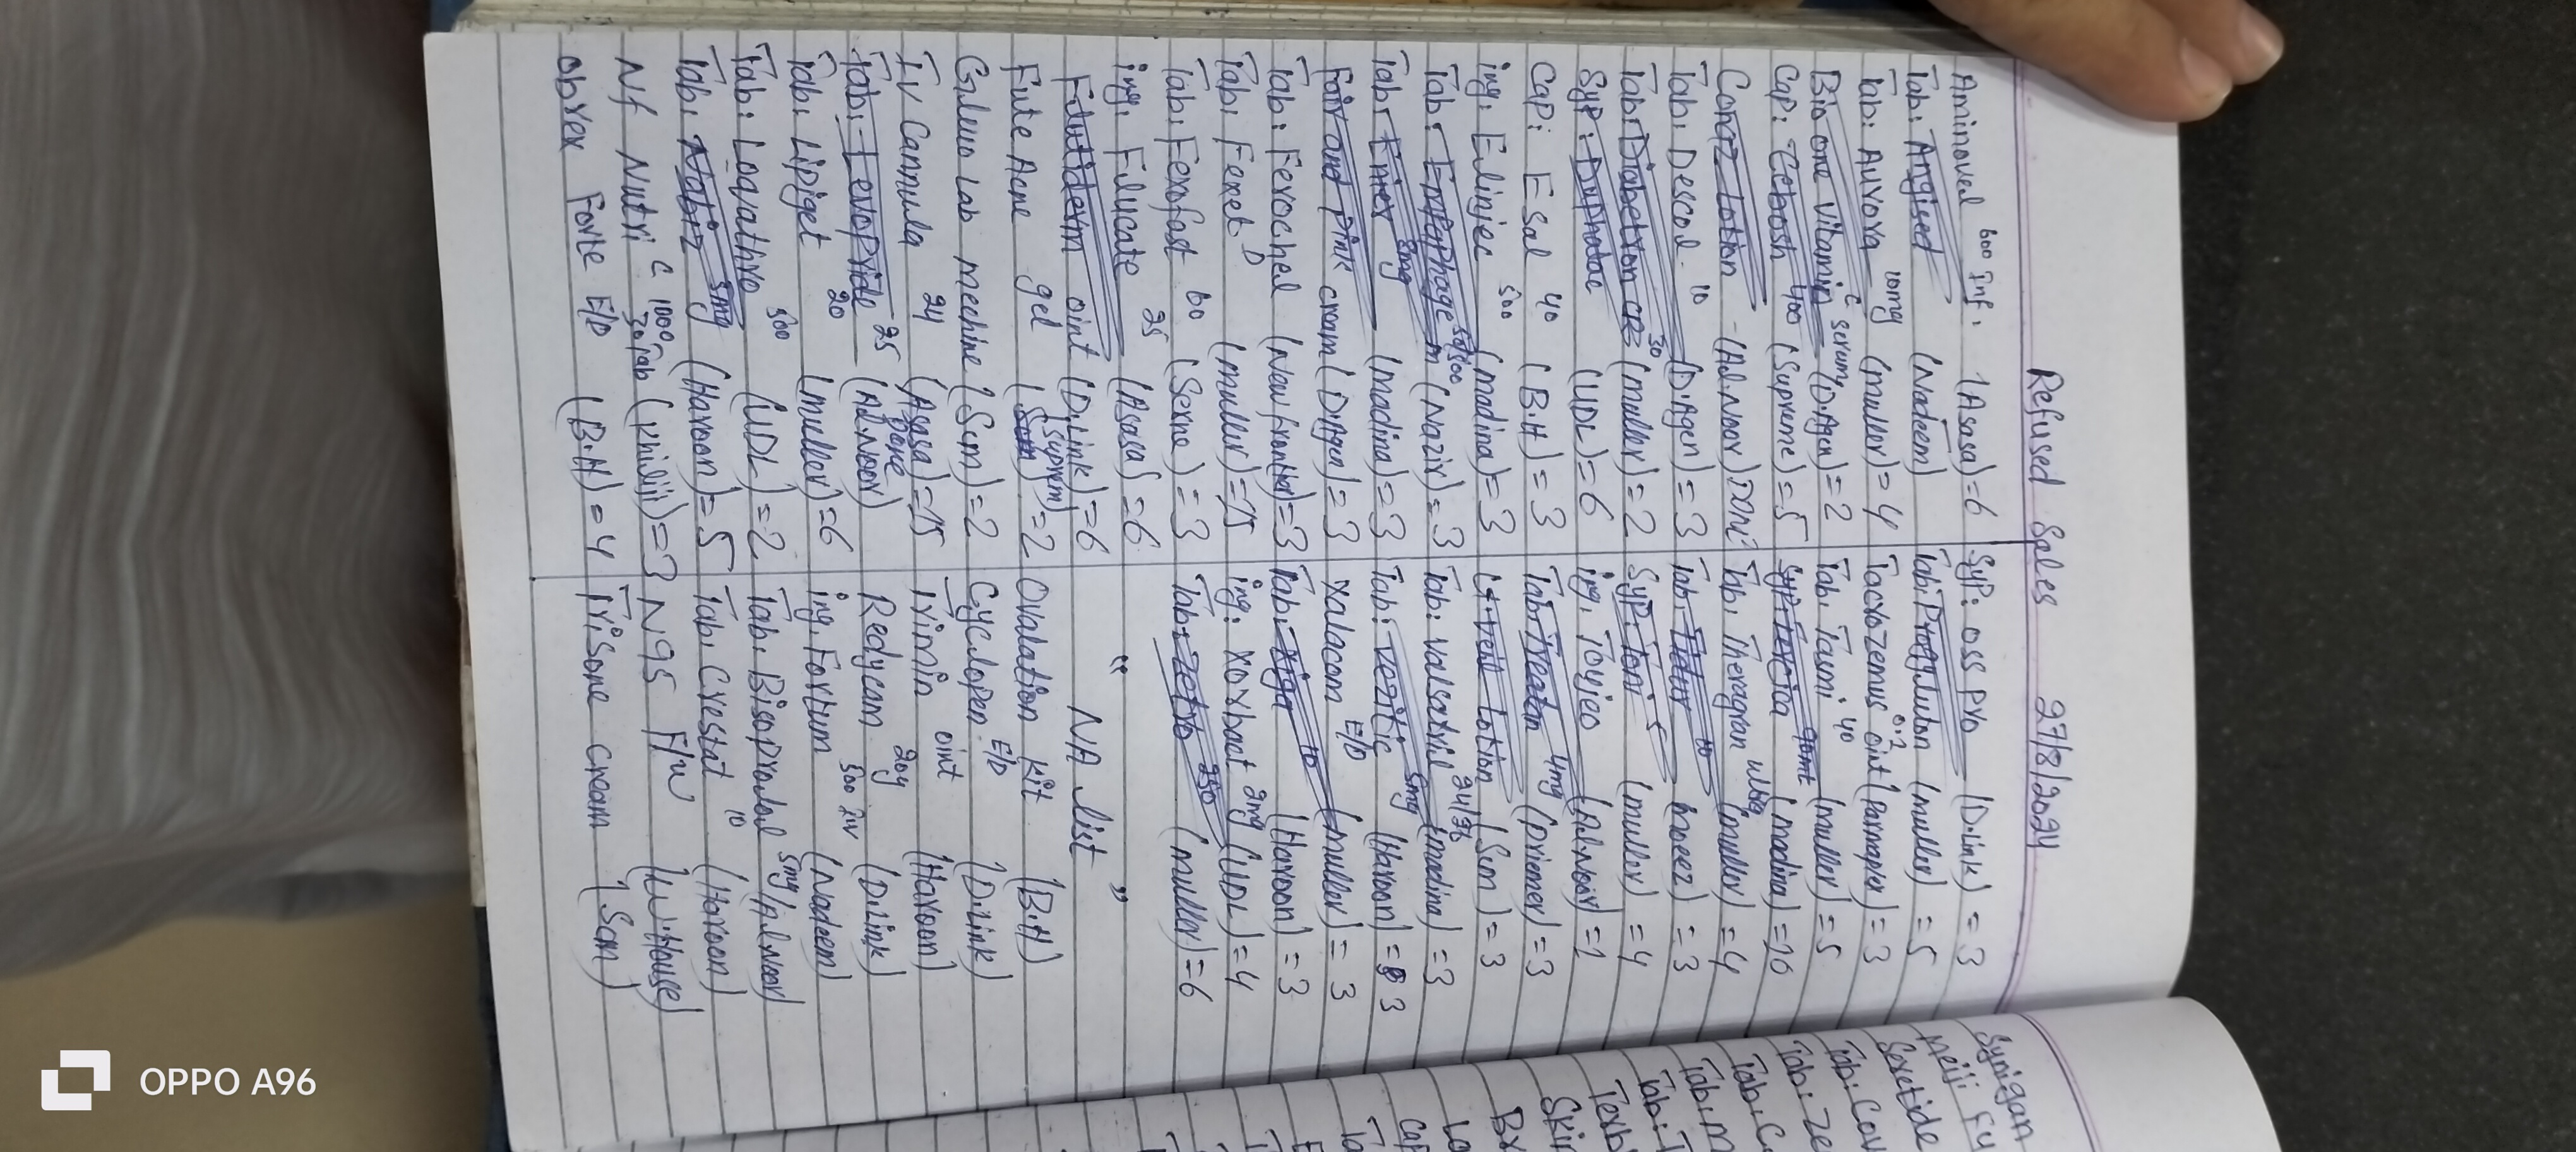 Refused Sales 27/8/2024
Aminovel 600 inf. (Asasa)=6
Tab: Angised (Nadeem)
Tab: Aurora 10mg (muller)=4
Bio one vitamin c serum (D.Agen)=2
Cap: Cebosh 400 (Supreme)=5
Conaz Lotion - (Al.Noor) Done
Tab: Descol 10 (D.Agen)=3
Tab: Diabetron CR 30 (muller)=2
Syp: Duphalac (UDL)=6
Cap: Esal 40 (B.H)=3
inj: Elinjec 500 (madina)=3
Tab: Empaphage m (Nazir)=3
Tab: Enier (madina)=3
Fair and Pink cream (D.Agen)=3
Tab: Ferochel (New frontier)=3
Tab: Fexet D (muller)=15
Tab: Fexofast 60 (Serne)=3
inj: Filucate 25 (Asasa)=6
oint (D.Link)=6
Fute Acne gel (Suprem)=2
Galuco Lab mechine (Scm)=2
IV Cannula 24 (Asasa)=15
Tab: Levopride 25 (Al.Noor) Done
Tab: Lipiget 20 (muller)=6
Tab: Loqathro 500 (UDL)=2
Tab: Nabiz 5mg (Haroon)=5
Nf Nutri c 1000 30Tab (Khiliji)=3
obrex Forte E/D (B.H)=4
Syp: OSS Pro (D.Link)=3
Tab: Proglutan (muller)=5
Tacrozemus 0.1 oint (Parmaplex)=3
Tab: Tasmi 40 (muller)=5
Syp: Tercica 90ml (madina)=10
Tab: Theragran ultra (muller)=4
Tab: 10 (moeez)=3
Syp: Toni 5 (muller)=4
inj. Toujeo (Al.Noor)=1
Tab: Treatan 4mg (Priemer)=3
Lotion (Scm)=3
Tab: Valsatril 24/26 (madina)=3
Tab: Vezitic 5mg (Haroon)=3
Xalacom E/D (muller)=3
Tab: Xiga 10 (Haroon)=3
inj: Xoxbact 2mg (UDL)=4
Tab: Zetro 250 (muller)=6
" NA list "
Ovalation Kit (B.H)
Cyclopen E/D (D.Link)
Trimin oint (Haroon)
Redycam 20g (D.Link)
inj. Fortum 500 iv (Nadeem)
Tab. Bisoprolol 5mg (Al.Noor)
Tab. Crestat 10 (Haroon)
N95 F/w (W.House)
Trisone cream (Scm)
Synigan
Meiji Fu
Seretide
Tab: Cov
Tab: Ze
Tab: C
Tab: M
Tab: T
Skin